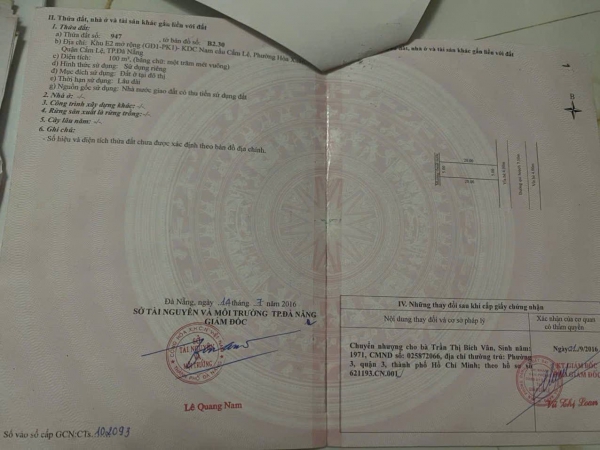 II. Thửa đất, nhà ở và tài sản khác gắn liền với đất
1. Thửa đất:
a) Thửa đất số: 947 , tờ bản đồ số: B2.30
b) Địa chỉ: Khu E2 mở rộng (GĐ1-PK1)- KDC Nam cầu Cẩm Lệ, Phường Hòa
Quận Cẩm Lệ, TP.Đà Nẵng
c) Diện tích: 100 m², (bằng chữ: một trăm mét vuông)
d) Hình thức sử dụng: Sử dụng riêng
đ) Mục đích sử dụng: Đất ở tại đô thị
e) Thời hạn sử dụng: Lâu dài
g) Nguồn gốc sử dụng: Nhà nước giao đất có thu tiền sử dụng đất
2. Nhà ở: -/-
3. Công trình xây dựng khác: -/-
4. Rừng sản xuất là rừng trồng: -/-
5. Cây lâu năm: -/-
6. Ghi chú:
- Số hiệu và diện tích thửa đất chưa được xác định theo bản đồ địa chính.
Đà Nẵng, ngày 14 tháng 7 năm 2016
SỞ TÀI NGUYÊN VÀ MÔI TRƯỜNG TP.ĐÀ NẴNG
GIÁM ĐỐC
Lê Quang Nam
Số vào sổ cấp GCN:CTs. 102093
đất, nhà ở và tài sản khác gắn liền với đất
B
IV. Những thay đổi sau khi cấp giấy chứng nhận
Nội dung thay đổi và cơ sở pháp lý
Xác nhận của cơ quan
có thẩm quyền
Chuyển nhượng cho bà Trần Thị Bích Vân, Sinh năm:
1971, CMND số: 025872066, địa chỉ thường trú: Phường
3, quận 3, thành phố Hồ Chí Minh; theo hồ sơ số
621193.CN.001
/9/2016
KT.GIÁM ĐỐC
PHÓ GIÁM ĐỐC
Loan